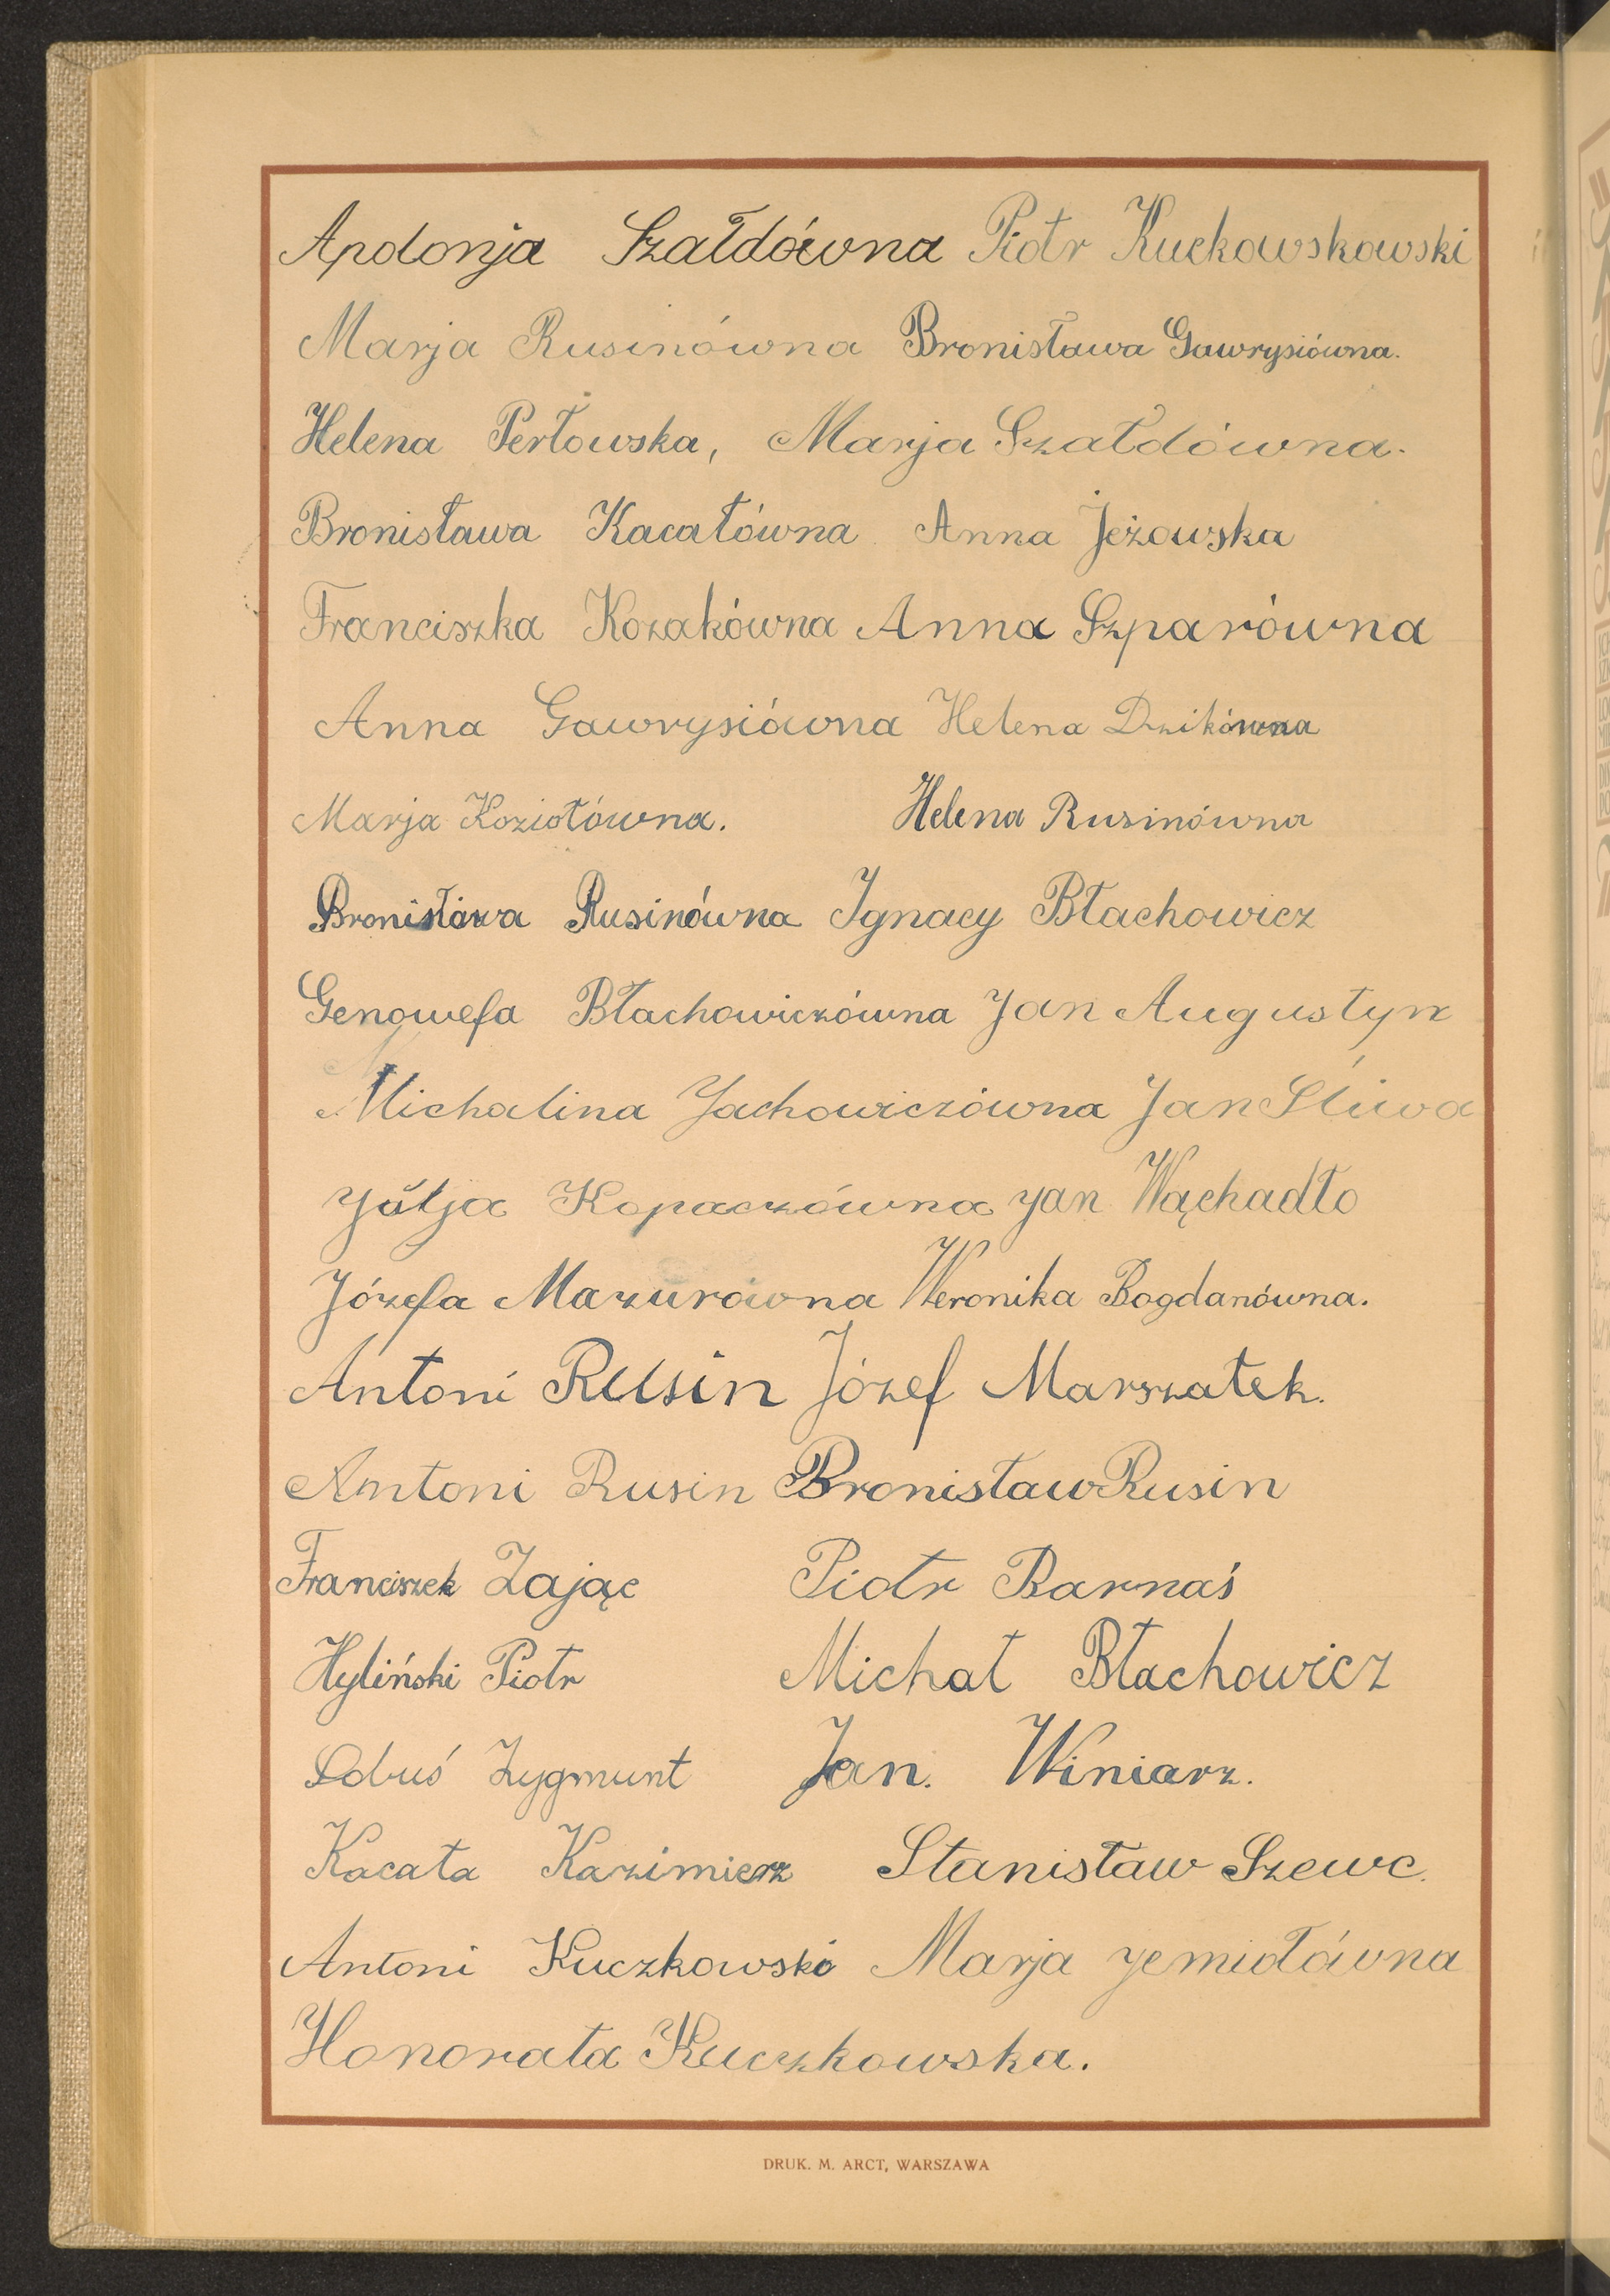 Apolonja Szałdówna Piotr Kuckowskowski
Marja Rusinówna Bronisława Gawrysiówna.
Helena Perłowska, Marja Szałdówna.
Bronisława Kacałówna Anna Jeżowska
Franciszka Kozakówna Anna Szparówna
Anna Gawrysiówna Helena Dzikówna
Marja Koziołówna. Helena Rusinówna
Bronisława Rusinówna Ignacy Błachowicz
Genowefa Błachowiczówna Jan Augustyn
Michalina Jachowiczówna Jan Śliwa
Kopaczówna Jan Wąchadło
Józefa Mazurówna Weronika Bogdanówna.
Antoni Rusin Józef Marszałek.
Antoni Rusin Bronisław Rusin
Franciszek Zając Piotr Barnaś
Hyliński Piotr Michał Błachowicz
Zygmunt Jan. Winiarz.
Kacała Kazimierz Stanisław Szewc.
Antoni Kuczkowski Marja Jemiołówna
Honorata Kuczkowska.
DRUK. M. ARCT, WARSZAWA